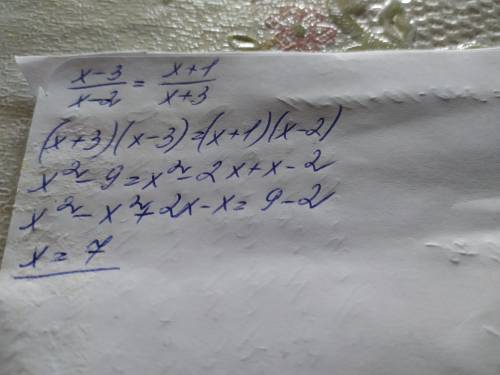 x-3/x-2 = x+1/x+3
(x+3)(x-3)=(x+1)(x-2)
x²-9=x²-2x+x-2
x²-x²+2x-x=9-2
x=7